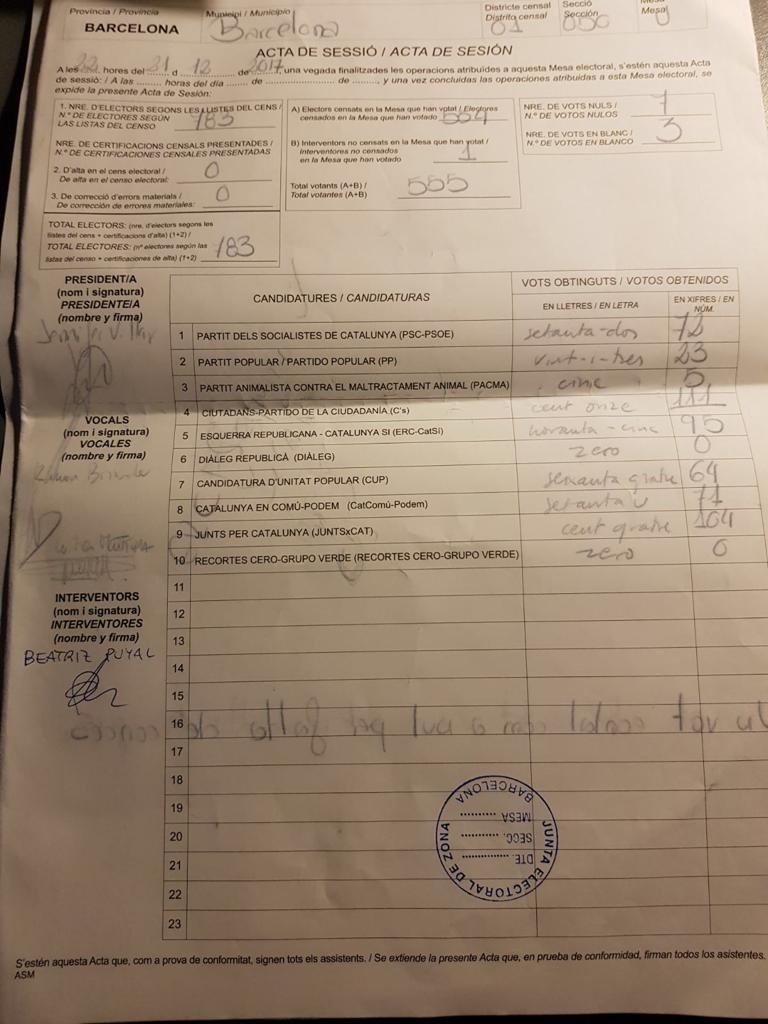 Província / Provincia
BARCELONA
Municipi / Municipio
Barcelona
Districte censal
Distrito censal
01
Secció
Sección
050
Mesa
U
ACTA DE SESSIÓ / ACTA DE SESIÓN
A les 22 hores del 21 d 12 de 2017, una vegada finalitzades les operacions atribuïdes a aquesta Mesa electoral, s'estén aquesta Acta
de sessió: / A las ........ horas del día ........ de ........ de ........, y una vez concluidas las operaciones atribuidas a esta Mesa electoral, se
expide la presente Acta de Sesión:
1. NRE. D'ELECTORS SEGONS LES LLISTES DEL CENS /
N.º DE ELECTORES SEGÚN
LAS LISTAS DEL CENSO 783
NRE. DE CERTIFICACIONS CENSALS PRESENTADES /
N.º DE CERTIFICACIONES CENSALES PRESENTADAS
2. D'alta en el cens electoral /
De alta en el censo electoral: 0
3. De correcció d'errors materials /
De corrección de errores materiales: 0
TOTAL ELECTORS: (nre. d'electors segons les
llistes del cens + certificacions d'alta) (1+2) /
TOTAL ELECTORES: (nº electores según las
listas del censo + certificaciones de alta) (1+2) 783
A) Electors censats en la Mesa que han votat / Electores
censados en la Mesa que han votado 554
B) Interventors no censats en la Mesa que han votat /
Interventores no censados
en la Mesa que han votado 1
Total votants (A+B) /
Total votantes (A+B) 555
NRE. DE VOTS NULS /
N.º DE VOTOS NULOS 7
NRE. DE VOTS EN BLANC /
N.º DE VOTOS EN BLANCO 3
PRESIDENT/A
(nom i signatura)
PRESIDENTE/A
(nombre y firma)
VOCALS
(nom i signatura)
VOCALES
(nombre y firma)
INTERVENTORS
(nom i signatura)
INTERVENTORES
(nombre y firma)
BEATRIZ PUYAL
CANDIDATURES / CANDIDATURAS
VOTS OBTINGUTS / VOTOS OBTENIDOS
EN LLETRES / EN LETRA
EN XIFRES / EN NÚM.
1 PARTIT DELS SOCIALISTES DE CATALUNYA (PSC-PSOE) setanta-dos 72
2 PARTIT POPULAR / PARTIDO POPULAR (PP) vint-i-tres 23
3 PARTIT ANIMALISTA CONTRA EL MALTRACTAMENT ANIMAL (PACMA) cinc 5
4 CIUTADANS-PARTIDO DE LA CIUDADANÍA (C's) cent onze 111
5 ESQUERRA REPUBLICANA - CATALUNYA SI (ERC-CatSí) noranta-cinc 95
6 DIÀLEG REPUBLICÀ (DIÀLEG) zero 0
7 CANDIDATURA D'UNITAT POPULAR (CUP) seixanta quatre 64
8 CATALUNYA EN COMÚ-PODEM (CatComú-Podem) setanta u 71
9 JUNTS PER CATALUNYA (JUNTSxCAT) cent quatre 104
10 RECORTES CERO-GRUPO VERDE (RECORTES CERO-GRUPO VERDE) zero 0
11
12
13
14
15
16
17
18
19
20
21
22
23
JUNTA ELECTORAL DE ZONA
BARCELONA
DTE. ........
SECC. ........
MESA ........
S'estén aquesta Acta que, com a prova de conformitat, signen tots els assistents. / Se extiende la presente Acta que, en prueba de conformidad, firman todos los asistentes.
ASM